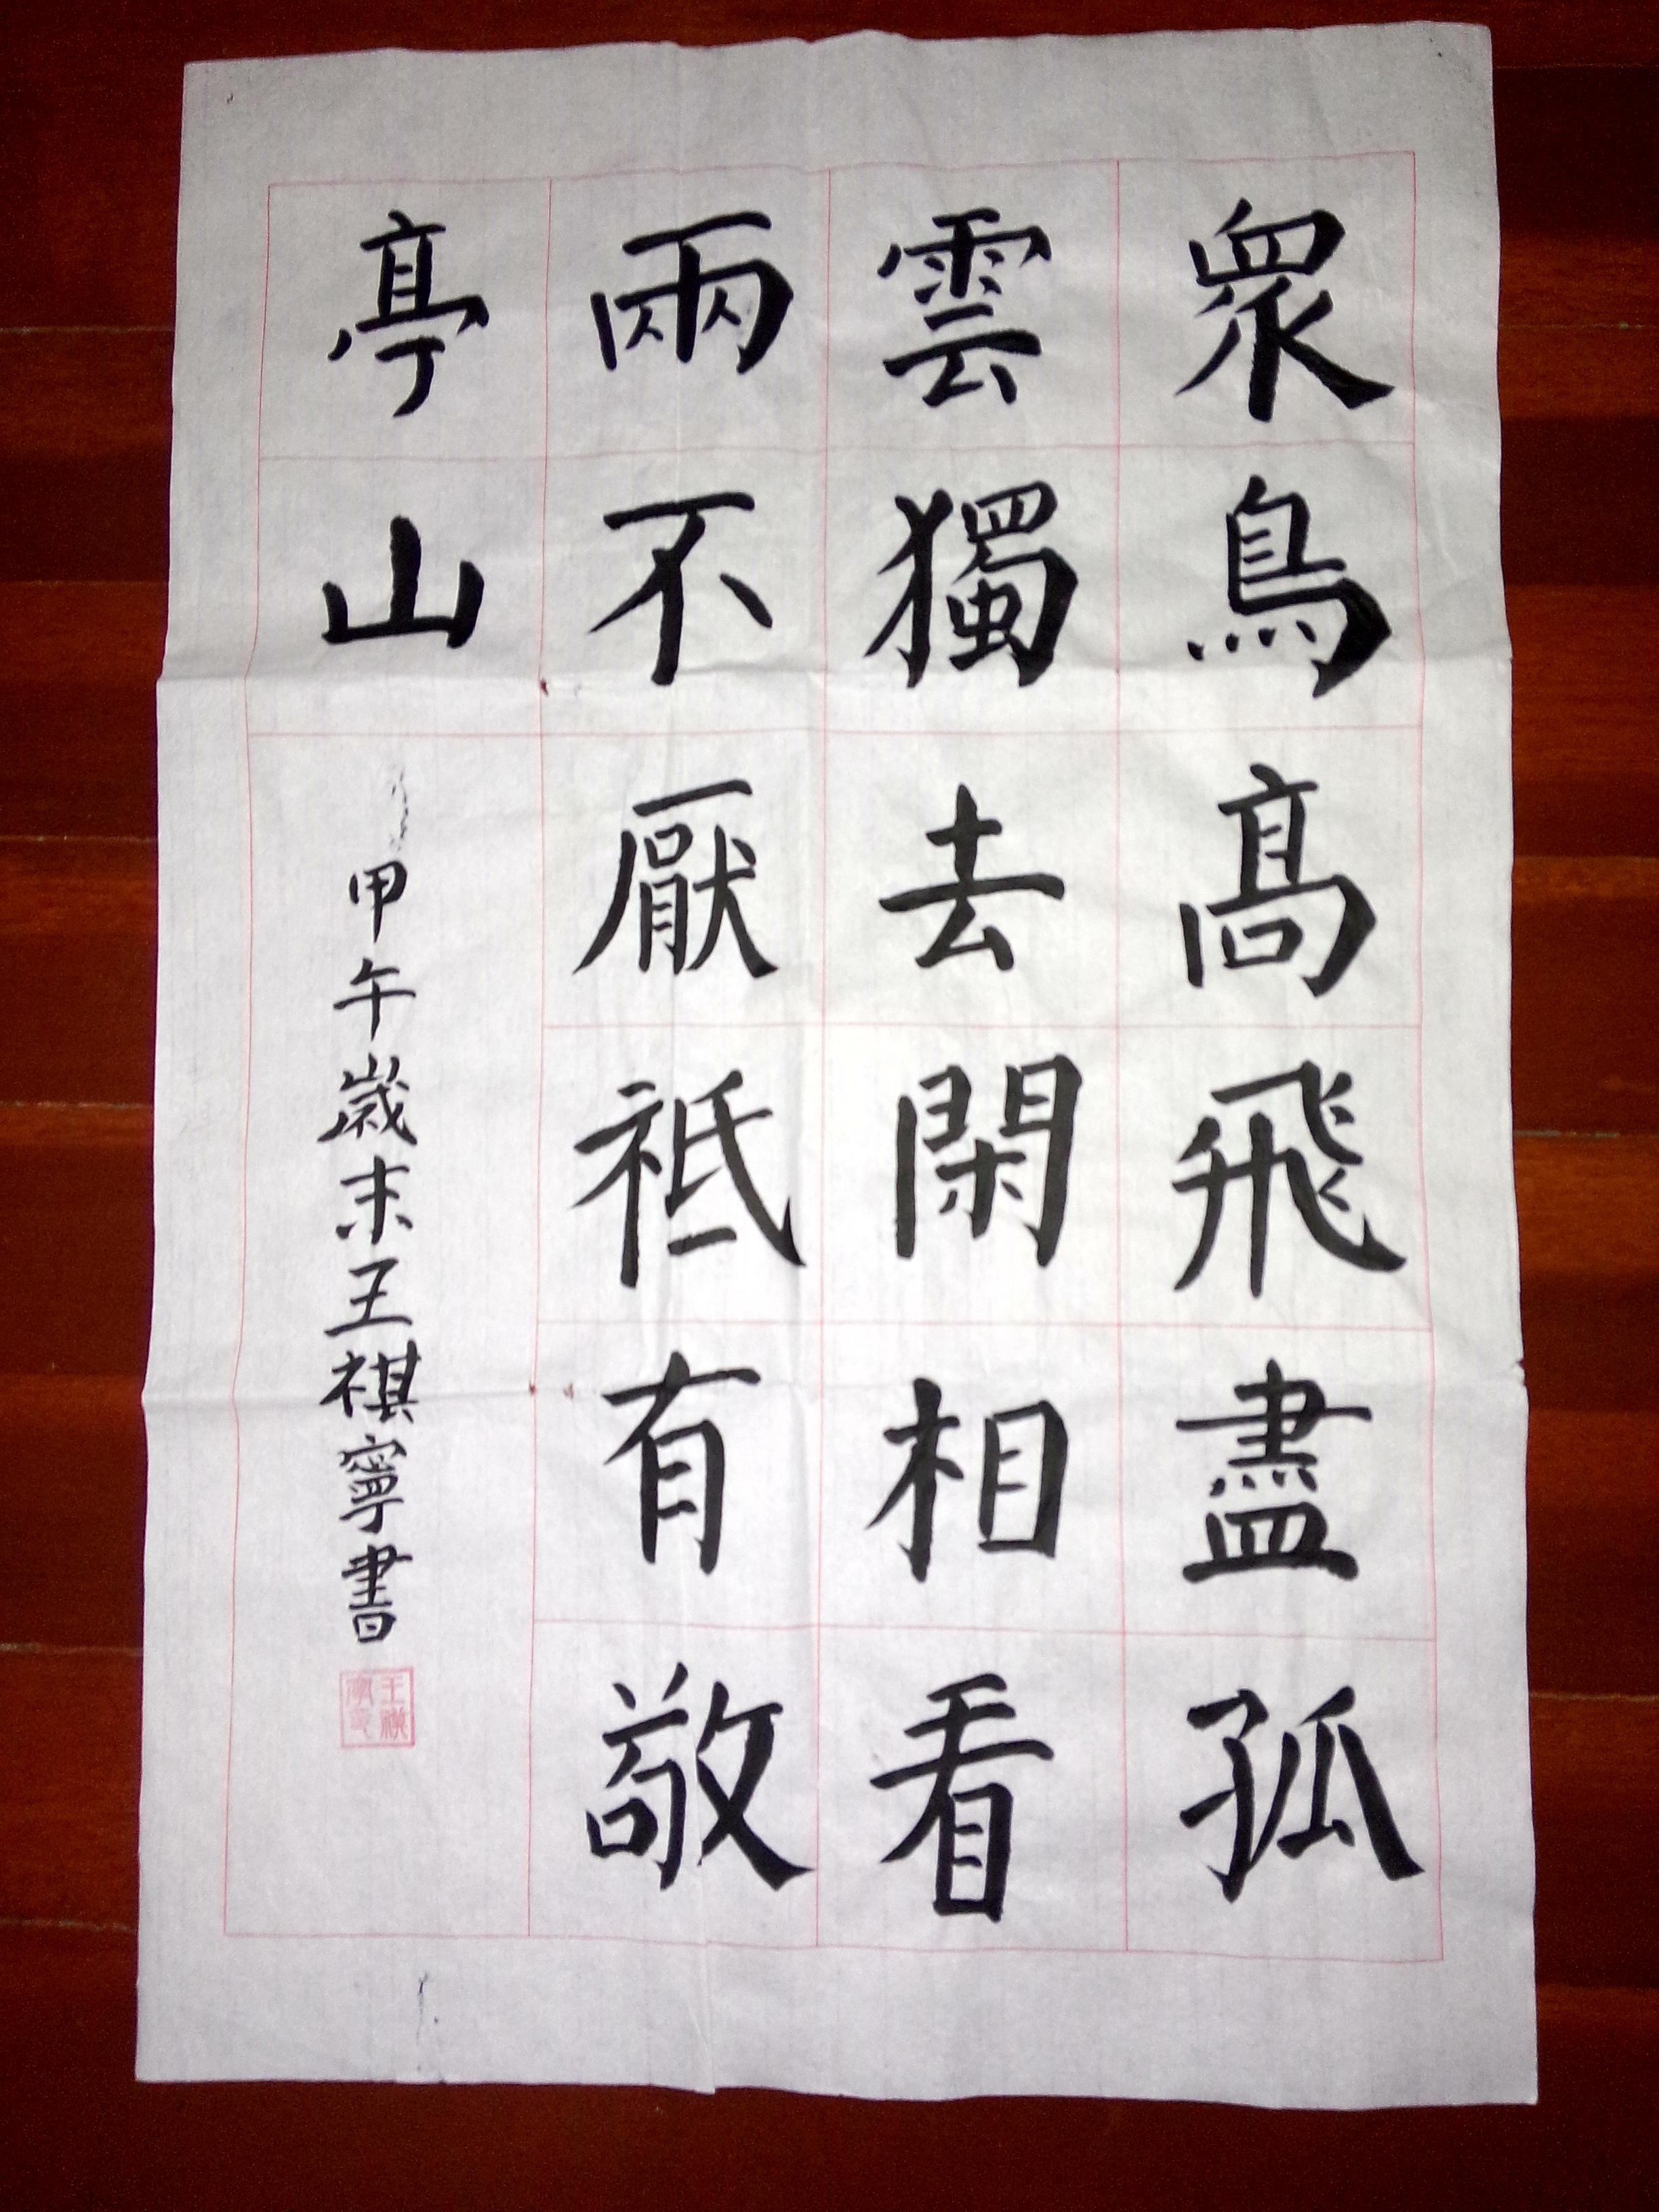 眾鳥高飛盡孤
雲獨去閑相看
兩不厭祗有敬
亭山
甲午歲末王祺寧書